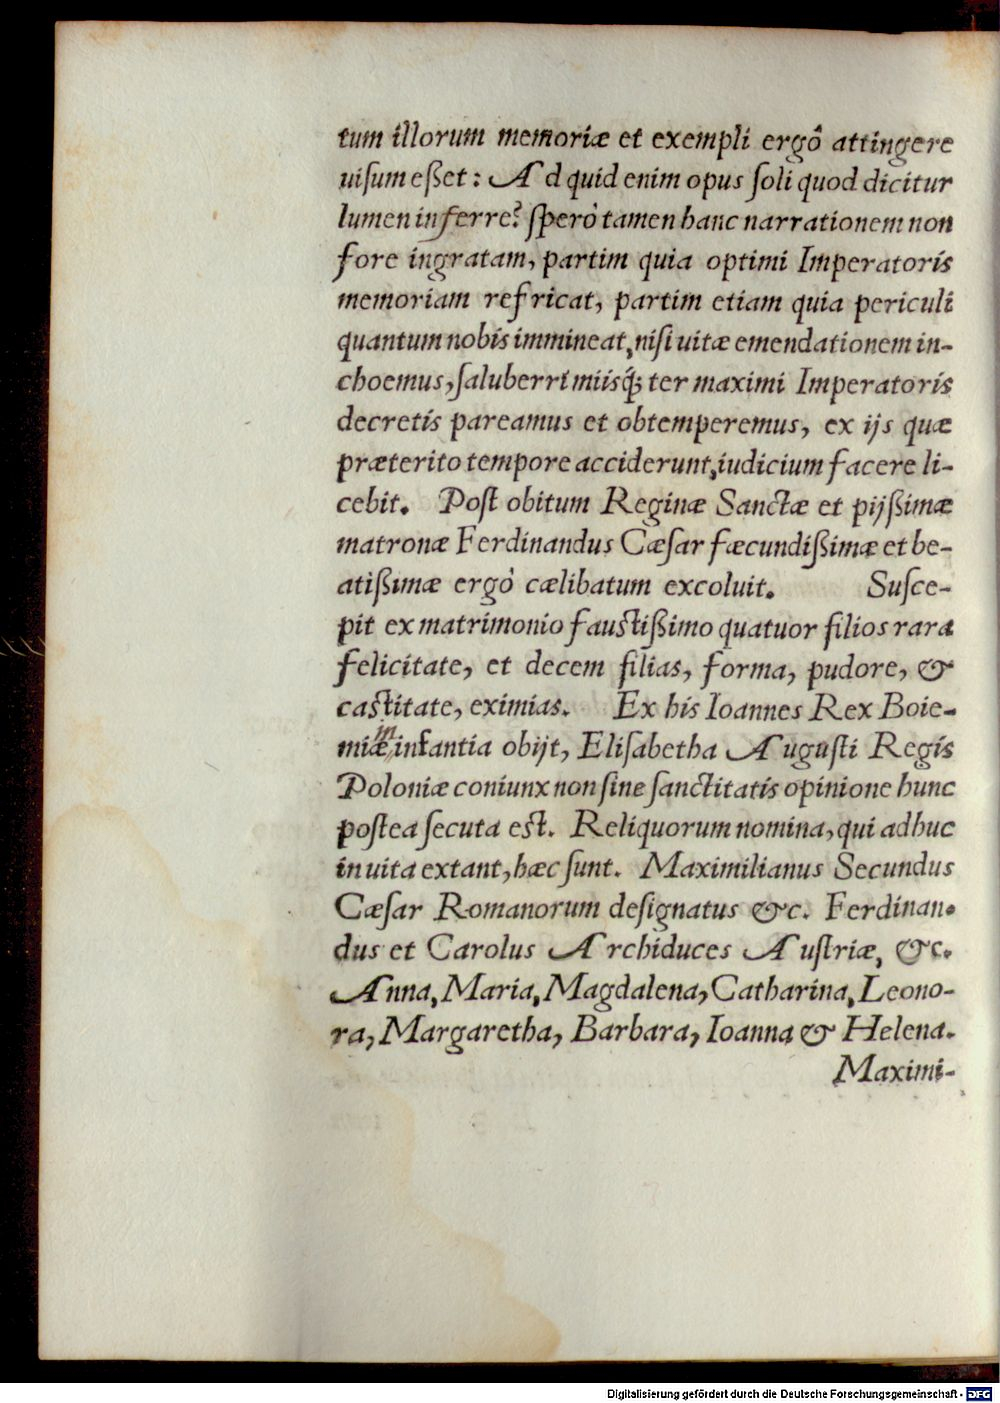 tum illorum memoriæ et exempli ergô attingere
uiſum eßet: Ad quid enim opus ſoli quod dicitur
lumen inferre? ſperò tamen hanc narrationem non
fore ingratam, partim quia optimi Imperatoris
memoriam refricat, partim etiam quia periculi
quantum nobis immineat, niſi uitæ emendationem in-
choemus, ſaluberrimiisq́; ter maximi Imperatoris
decretis pareamus et obtemperemus, ex ijs quæ
præterito tempore acciderunt, iudicium facere li-
cebit. Poſt obitum Reginæ Sanctæ et pijßimæ
matronæ Ferdinandus Cæſar fæcundißimæ et be-
atißimæ ergò cælibatum excoluit. Suſce-
pit ex matrimonio fauſtißimo quatuor filios rara
felicitate, et decem filias, forma, pudore, &
caſtitate, eximias. Ex his Ioannes Rex Boie-
miæ in infantia obijt, Eliſabetha Auguſti Regis
Poloniæ coniunx non ſine ſanctitatis opinione hunc
poſtea ſecuta eſt. Reliquorum nomina, qui adhuc
in uita extant, hæc ſunt. Maximilianus Secundus
Cæſar Romanorum deſignatus &c. Ferdinan-
dus et Carolus Archiduces Auſtriæ, &c.
Anna, Maria, Magdalena, Catharina, Leono-
ra, Margaretha, Barbara, Ioanna & Helena.
Maximi-
Digitalisierung gefördert durch die Deutsche Forschungsgemeinschaft - DFG